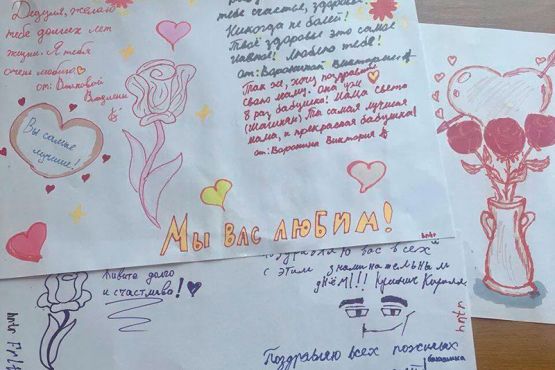 Дедуля, желаю
тебе долгих лет
жизни. Я тебя
очень люблю.
от:
Вы самые
лучшие!
тебе счастья, здоровья
Никогда не болей!
Твоё здоровье это самое
главное! Люблю тебя!
от: Воронина Виктория
Так же, хочу поздравить
свою маму. Она уже
8 раз бабушка! Мама Света
Ты самая лучшая
мама, и прекрасная бабушка!
от: Воронина Виктория
Мы вас любим!
Живите долго
и счастливо!
Поздравляю вас всех
с этим знаменательным
днём!!!
Поздравляю всех пожилых